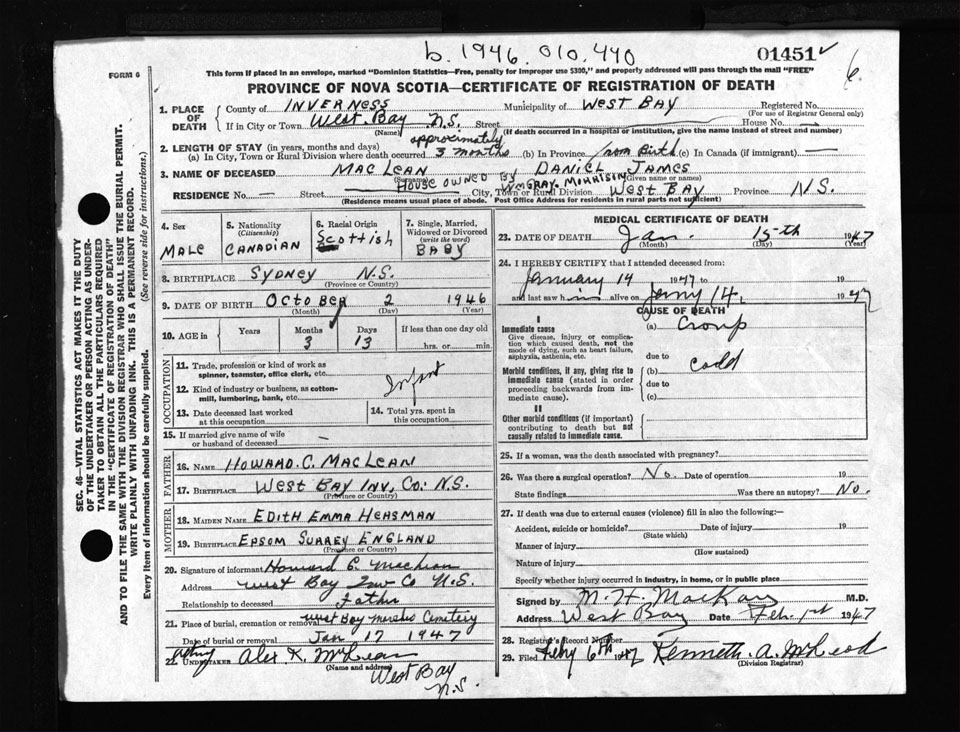 b. 1946. 010. 440
01451
6.
FORM 6
This form if placed in an envelope, marked "Dominion Statistics—Free, penalty for improper use $300," and properly addressed will pass through the mail "FREE"
PROVINCE OF NOVA SCOTIA—CERTIFICATE OF REGISTRATION OF DEATH
SEC. 46—VITAL STATISTICS ACT MAKES IT THE DUTY
OF THE UNDERTAKER OR PERSON ACTING AS UNDER-
TAKER TO OBTAIN ALL THE PARTICULARS REQUIRED
IN THE "CERTIFICATE OF REGISTRATION OF DEATH"
AND TO FILE THE SAME WITH THE DIVISION REGISTRAR WHO SHALL ISSUE THE BURIAL PERMIT.
WRITE PLAINLY WITH UNFADING INK. THIS IS A PERMANENT RECORD.
Every item of information should be carefully supplied. (See reverse side for instructions.)
1. PLACE OF DEATH
County of INVERNESS Municipality of WEST BAY Registered No.
(For use of Registrar General only)
If in City or Town West Bay N.S. Street House No. —
(Name) (If death occurred in a hospital or institution, give the name instead of street and number)
2. LENGTH OF STAY (in years, months and days) approximately
(a) In City, Town or Rural Division where death occurred 3 months (b) In Province from Birth (c) In Canada (if immigrant) —
3. NAME OF DECEASED MACLEAN DANIEL JAMES
(Surname) (Given name or names)
HOUSE OWNED BY WM GRAY. MORRISIN
RESIDENCE No. — Street City, Town or Rural Division WEST BAY Province N.S.
(Residence means usual place of abode. Post Office Address for residents in rural parts not sufficient)
4. Sex
MALE
5. Nationality
(Citizenship)
CANADIAN
6. Racial Origin
Scottish
7. Single, Married,
Widowed or Divorced
(write the word)
BABY
8. BIRTHPLACE SYDNEY N.S.
(Province or Country)
9. DATE OF BIRTH OCTOBER 2 1946
(Month) (Day) (Year)
10. AGE IN Years Months Days If less than one day old
3 13 hrs. or min.
OCCUPATION
11. Trade, profession or kind of work as
spinner, teamster, office clerk, etc.
12. Kind of industry or business, as cotton-
mill, lumbering, bank, etc.
Infant
13. Date deceased last worked
at this occupation
14. Total yrs. spent in
this occupation
15. If married give name of wife
or husband of deceased —
FATHER
16. NAME HOWARD. C. MACLEAN
17. BIRTHPLACE WEST BAY INV. CO: N.S.
(Province or Country)
MOTHER
18. MAIDEN NAME EDITH EMMA HEASMAN
19. BIRTHPLACE EPSOM SURREY ENGLAND
(Province or Country)
20. Signature of informant Howard C. Maclean
Address West Bay Inv Co N.S.
Relationship to deceased Father
21. Place of burial, cremation or removal West Bay Cemetery
Date of burial or removal Jan 17 1947
acting
22. UNDERTAKER Alex K. McLean
(Name and address)
West Bay
N.S.
MEDICAL CERTIFICATE OF DEATH
23. DATE OF DEATH Jan. 15th 1947
(Month) (Day) (Year)
24. I HEREBY CERTIFY that I attended deceased from:
January 14 1947 to 19
and last saw h m alive on 14, 1947
CAUSE OF DEATH
I
Immediate cause
Give disease, injury or complica-
tion which caused death, not the
mode of dying, such as heart failure,
asphyxia, asthenia, etc.
(a) Croup
due to
Morbid conditions, if any, giving rise to
immediate cause (stated in order
proceeding backwards from im-
mediate cause).
(b) cold
due to
(c)
II
Other morbid conditions (if important)
contributing to death but not
causally related to immediate cause.
25. If a woman, was the death associated with pregnancy?
26. Was there a surgical operation? No. Date of operation 19
State findings Was there an autopsy? No.
27. If death was due to external causes (violence) fill in also the following:—
Accident, suicide or homicide? Date of injury 19
(State which)
Manner of injury
(How sustained)
Nature of injury
Specify whether injury occurred in industry, in home, or in public place
Signed by M. H. MacKay M.D.
Address West Bay Date Feb. 1st 1947
28. Registrar's Record Number
29. Filed Feby 6th 1947 Kenneth. A. McLeod
(Division Registrar)